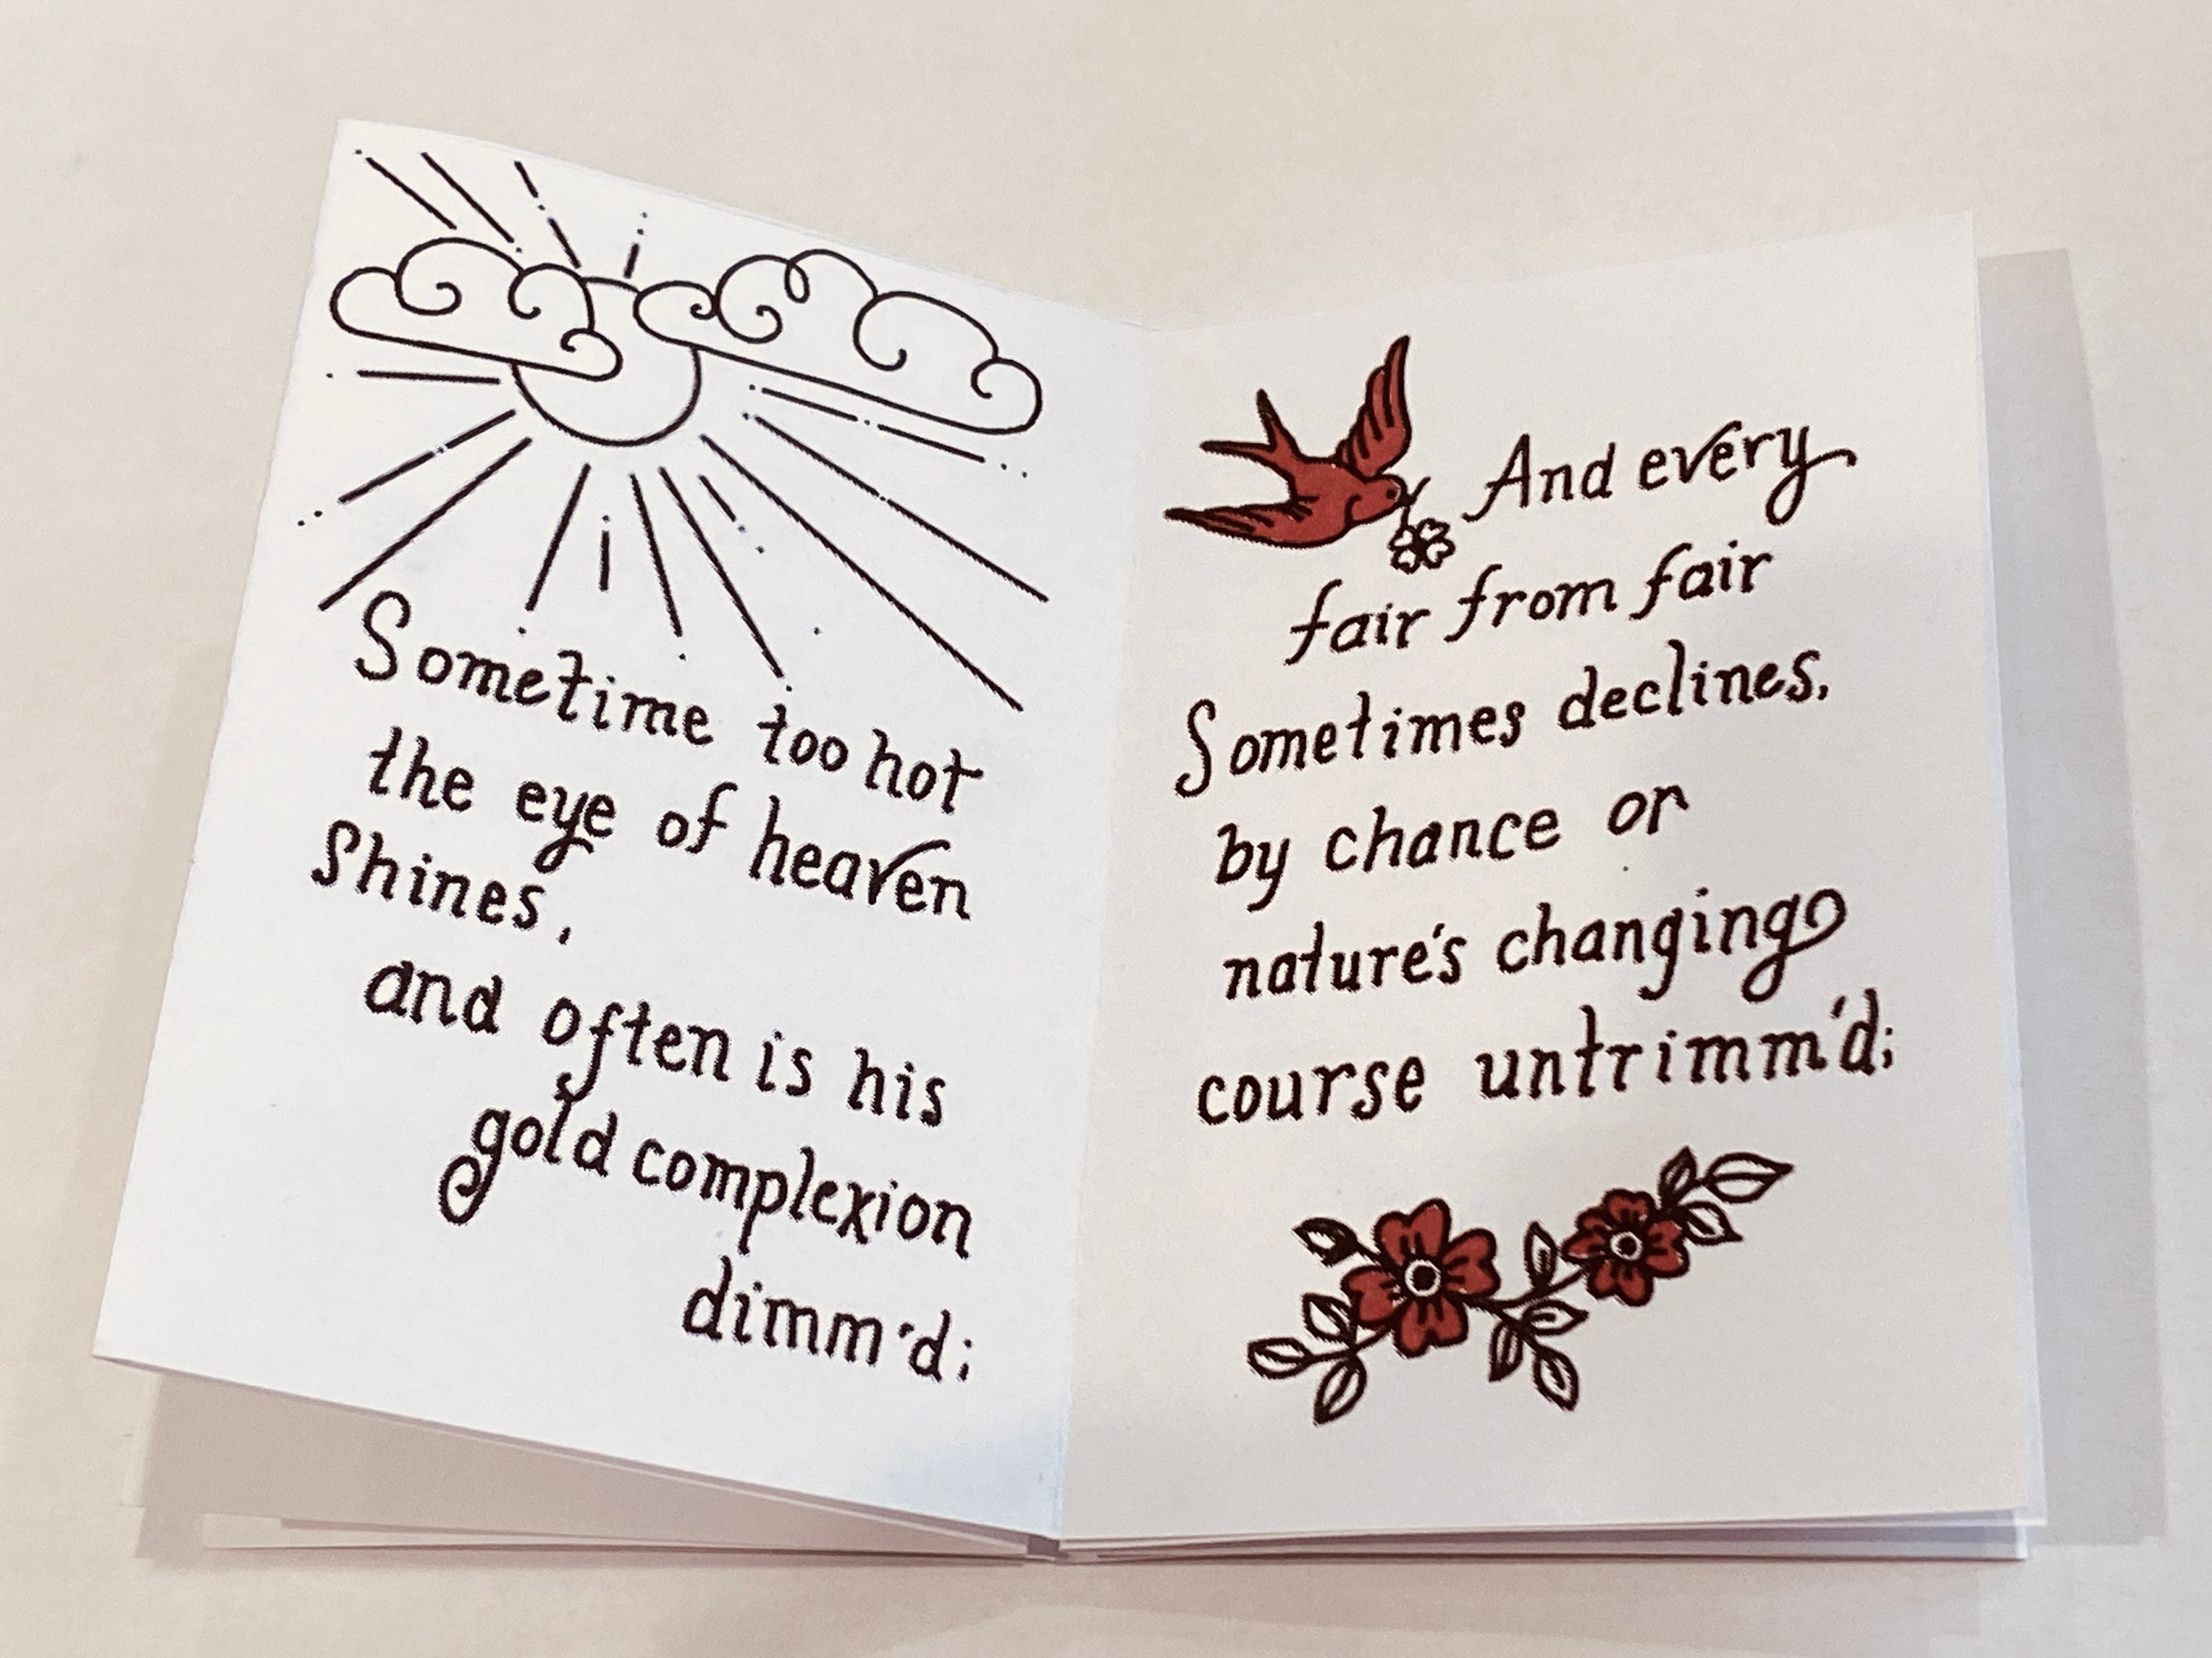 Sometime too hot
the eye of heaven
Shines,
and often is his
gold complexion
dimm'd;
And every
fair from fair
Sometimes declines,
by chance or
nature's changing
course untrimm'd;